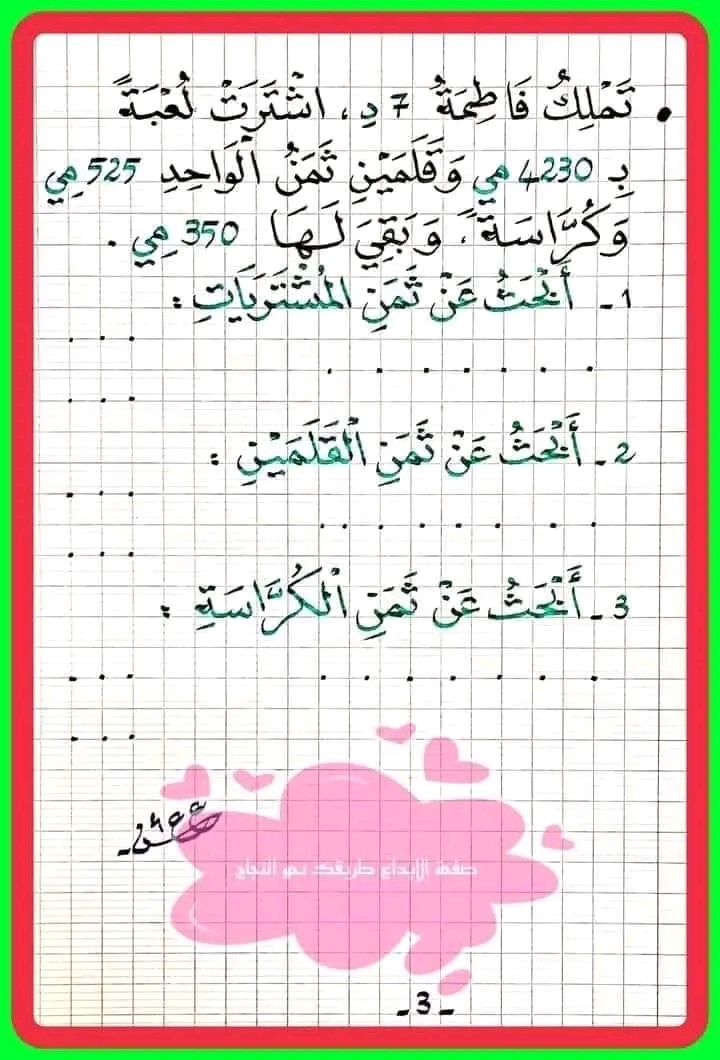 • تَمْلِكُ فَاطِمَةُ 7 دِ، اشْتَرَتْ لُعْبَةً
بِـ 4230 مي وَقَلَمَيْنِ ثَمَنُ الْوَاحِدِ 525 مِي
وَكُرَّاسَةً، وَبَقِيَ لَهَا 350 مِي.
1 - أَبْحَثُ عَنْ ثَمَنِ المُشْتَرَيَاتِ :
2 - أَبْحَثُ عَنْ ثَمَنِ الْقَلَمَيْنِ :
3 - أَبْحَثُ عَنْ ثَمَنِ الْكُرَّاسَةِ :
صفحة الإبداع طريقك نحو النجاح
- 3 -